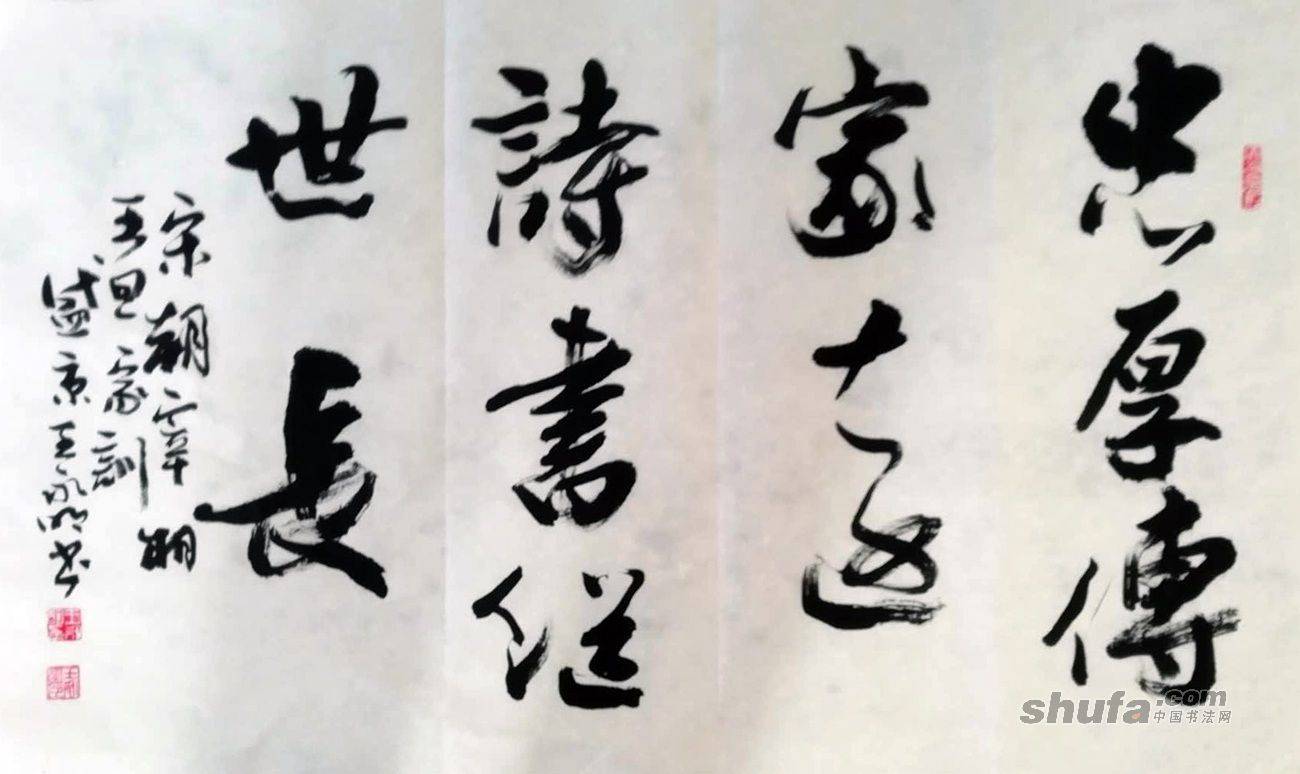 忠厚傳
家遠
詩書继
世長
宋朝宰相
王旦家訓
盛京王永明书
shufa.com
中国书法网